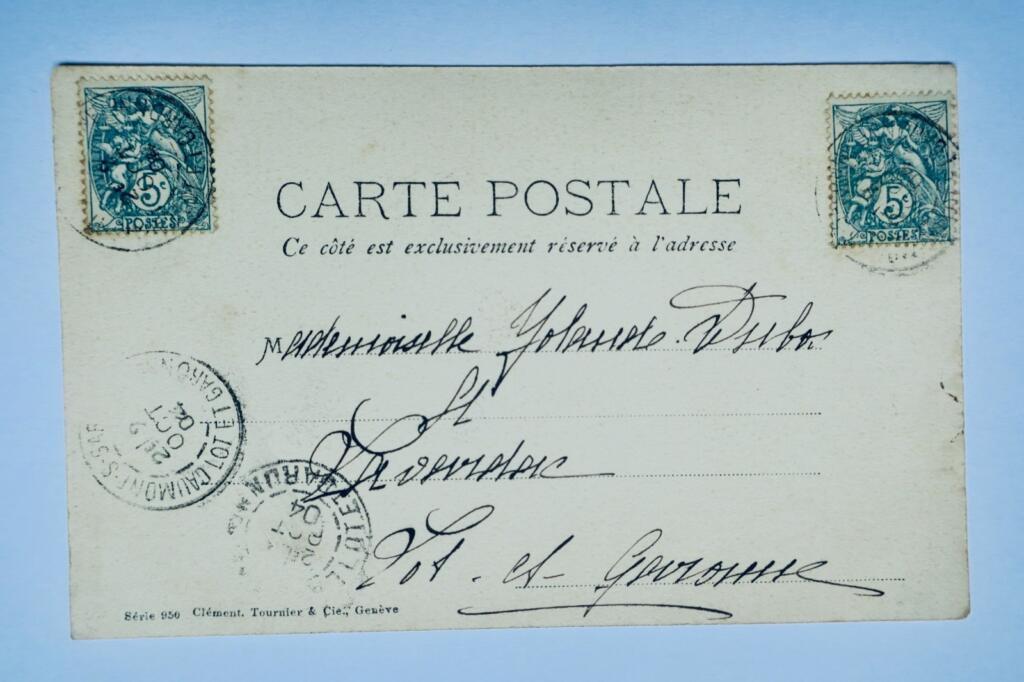 5c
POSTES
5c
POSTES
CARTE POSTALE
Ce côté est exclusivement réservé à l'adresse
Mademoiselle Yolande Dubos
Lavardac
Lot-et-Garonne
CAUMONT-S-GAR
LOT ET GARONNE
OCT
04
LOT ET GARONNE
OCT
04
Série 950 Clément, Tournier & Cie., Genève